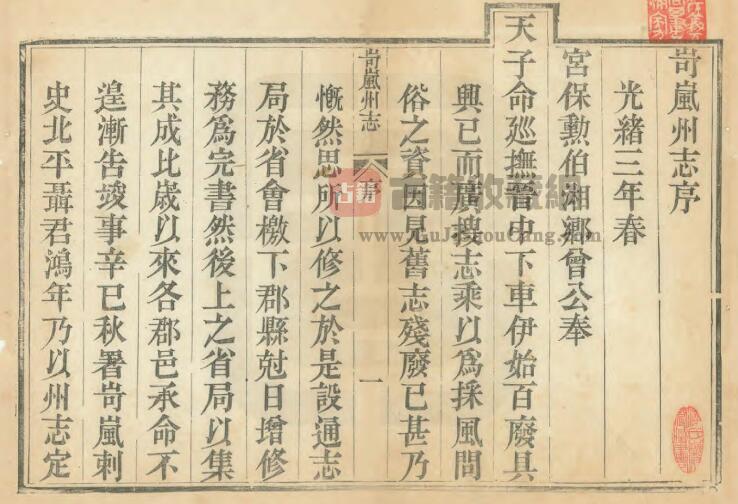 岢嵐州志序
光緒三年春
宮保勲伯湘鄉曾公奉
天子命廵撫晉中下車伊始百廢具
興已而廣搜志乘以爲採風問
俗之資因見舊志殘廢已甚乃
岢嵐州志 序 一
慨然思所以修之於是設通志
局於省會檄下郡縣尅日增修
務爲完書然後上之省局以集
其成比歲以來各郡邑承命不
遑漸告竣事辛巳秋署岢嵐刺
史北平聶君鴻年乃以州志定
古籍
古籍收藏網
www.GuJiShouCang.com